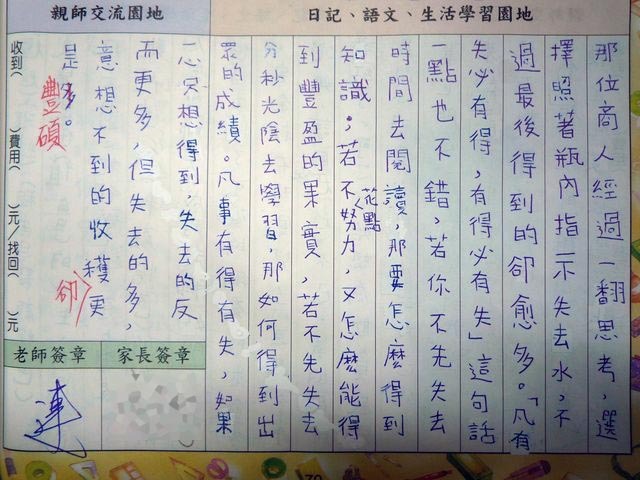 日記、語文、生活學習園地
那位商人經過一翻思考，選
擇照著瓶內指示失去水，不
過最後得到的卻愈多。「凡有
失必有得，有得必有失」這句話
一點也不錯，若你不先失去
時間去閱讀，那要怎麼得到
知識；若不花點努力，又怎麼能得
到豐盈的果實，若不先失去
分秒光陰去學習，那如何得到出
眾的成績。凡事有得有失，如果
親師交流園地
一心只想得到，失去的反
而更多，但失去的多，
意想不到的收穫更
卻
是多。
豐碩
收到（　　）費用（　　）元／找回（　　）元
家長簽章
老師簽章
連
70